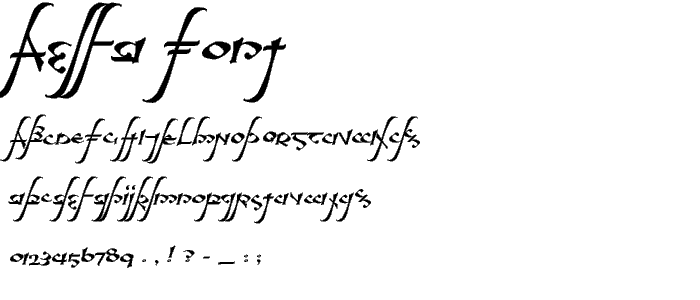 Aelfa Font
ABCDEFGHIJKLMNOPQRSTUVWXYZ
abcdefghijklmnopqrstuvwxyz
0123456789 . , ! ? - _ : ;